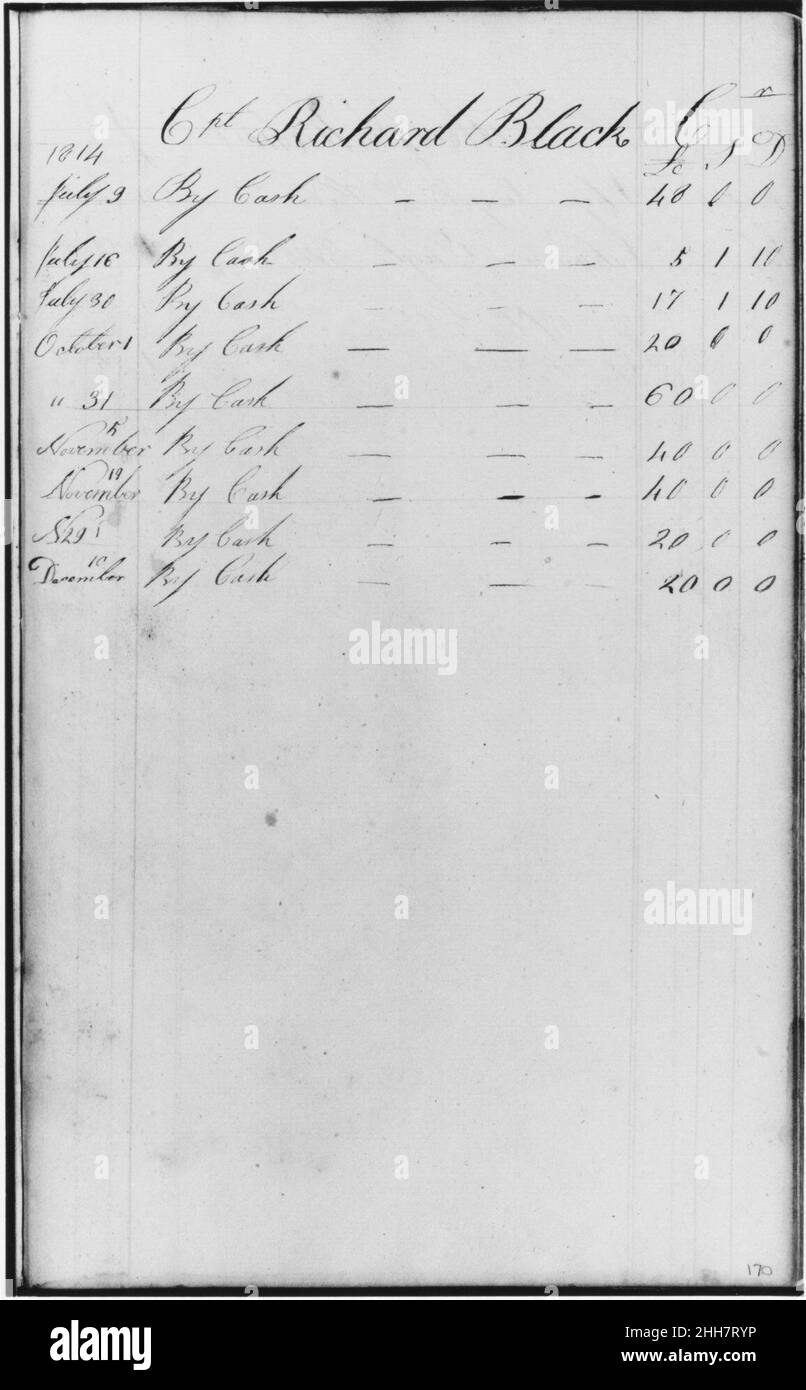 Cpt Richard Black Cr
1814 £ S D
July 9 By Cash — — — 48 0 0
July 16 By Cash — — — 5 1 10
July 30 By Cash — — — 17 1 10
October 1 By Cash — — — 20 0 0
" 31 By Cash — — — 60 0 0
November 5 By Cash — — — 40 0 0
November 19 By Cash — — — 40 0 0
29 By Cash — — — 20 0 0
December 10 By Cash — — — 20 0 0
170
alamy
alamy
alamy
Image ID: 2HH7RYP
www.alamy.com